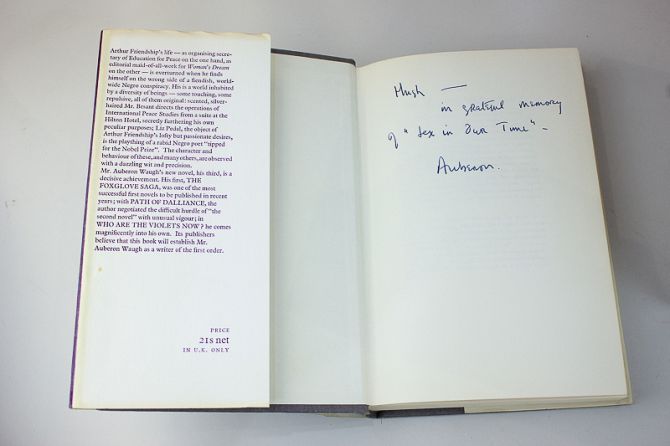 Arthur Friendship's life — as organising secre-
tary of Education for Peace on the one hand, as
editorial maid-of-all-work for Woman's Dream
on the other — is overturned when he finds
himself on the wrong side of a fiendish, world-
wide Negro conspiracy. His is a world inhabited
by a diversity of beings — some touching, some
repulsive, all of them original: scented, silver-
haired Mr. Besant directs the operations of
International Peace Studies from a suite at the
Hilton Hotel, secretly furthering his own
peculiar purposes; Liz Pedal, the object of
Arthur Friendship's lofty but passionate desires,
is the plaything of a rabid Negro poet "tipped
for the Nobel Prize". The character and
behaviour of these, and many others, are observed
with a dazzling wit and precision.
Mr. Auberon Waugh's new novel, his third, is a
decisive achievement. His first, THE
FOXGLOVE SAGA, was one of the most
successful first novels to be published in recent
years; with PATH OF DALLIANCE, the
author negotiated the difficult hurdle of "the
second novel" with unusual vigour; in
WHO ARE THE VIOLETS NOW? he comes
magnificently into his own. Its publishers
believe that this book will establish Mr.
Auberon Waugh as a writer of the first order.
PRICE
21s net
IN U.K. ONLY
Hugh —
in grateful memory
of "Sex in Our Time" -
Auberon.